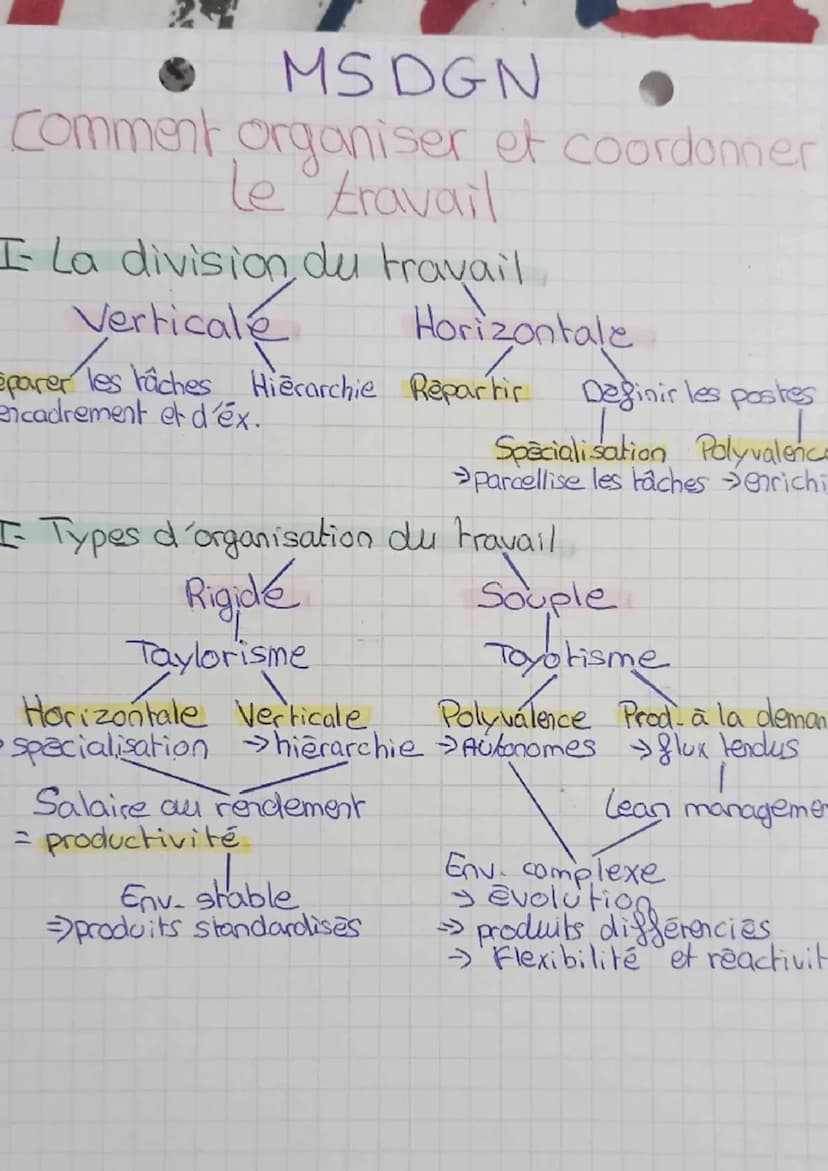 MSDGN
Comment organiser et coordonner
le travail
I- La division du travail
Verticale Horizontale
éparer les tâches Hiérarchie Répartir Définir les postes
encadrement et d'éx.
Spécialisation Polyvalenc
→parcellise les tâches →enrichi
I- Types d'organisation du travail
Rigide Souple
Taylorisme Toyotisme
Horizontale Verticale Polyvalence Prod. à la deman
spécialisation →hiérarchie →Autonomes →flux tendus
Salaire au rendement Lean manageme
= productivité
Env. complexe
Env. stable → évolution
⇒produits standardisés ⇒ produits différenciés
→ Flexibilité et réactivit